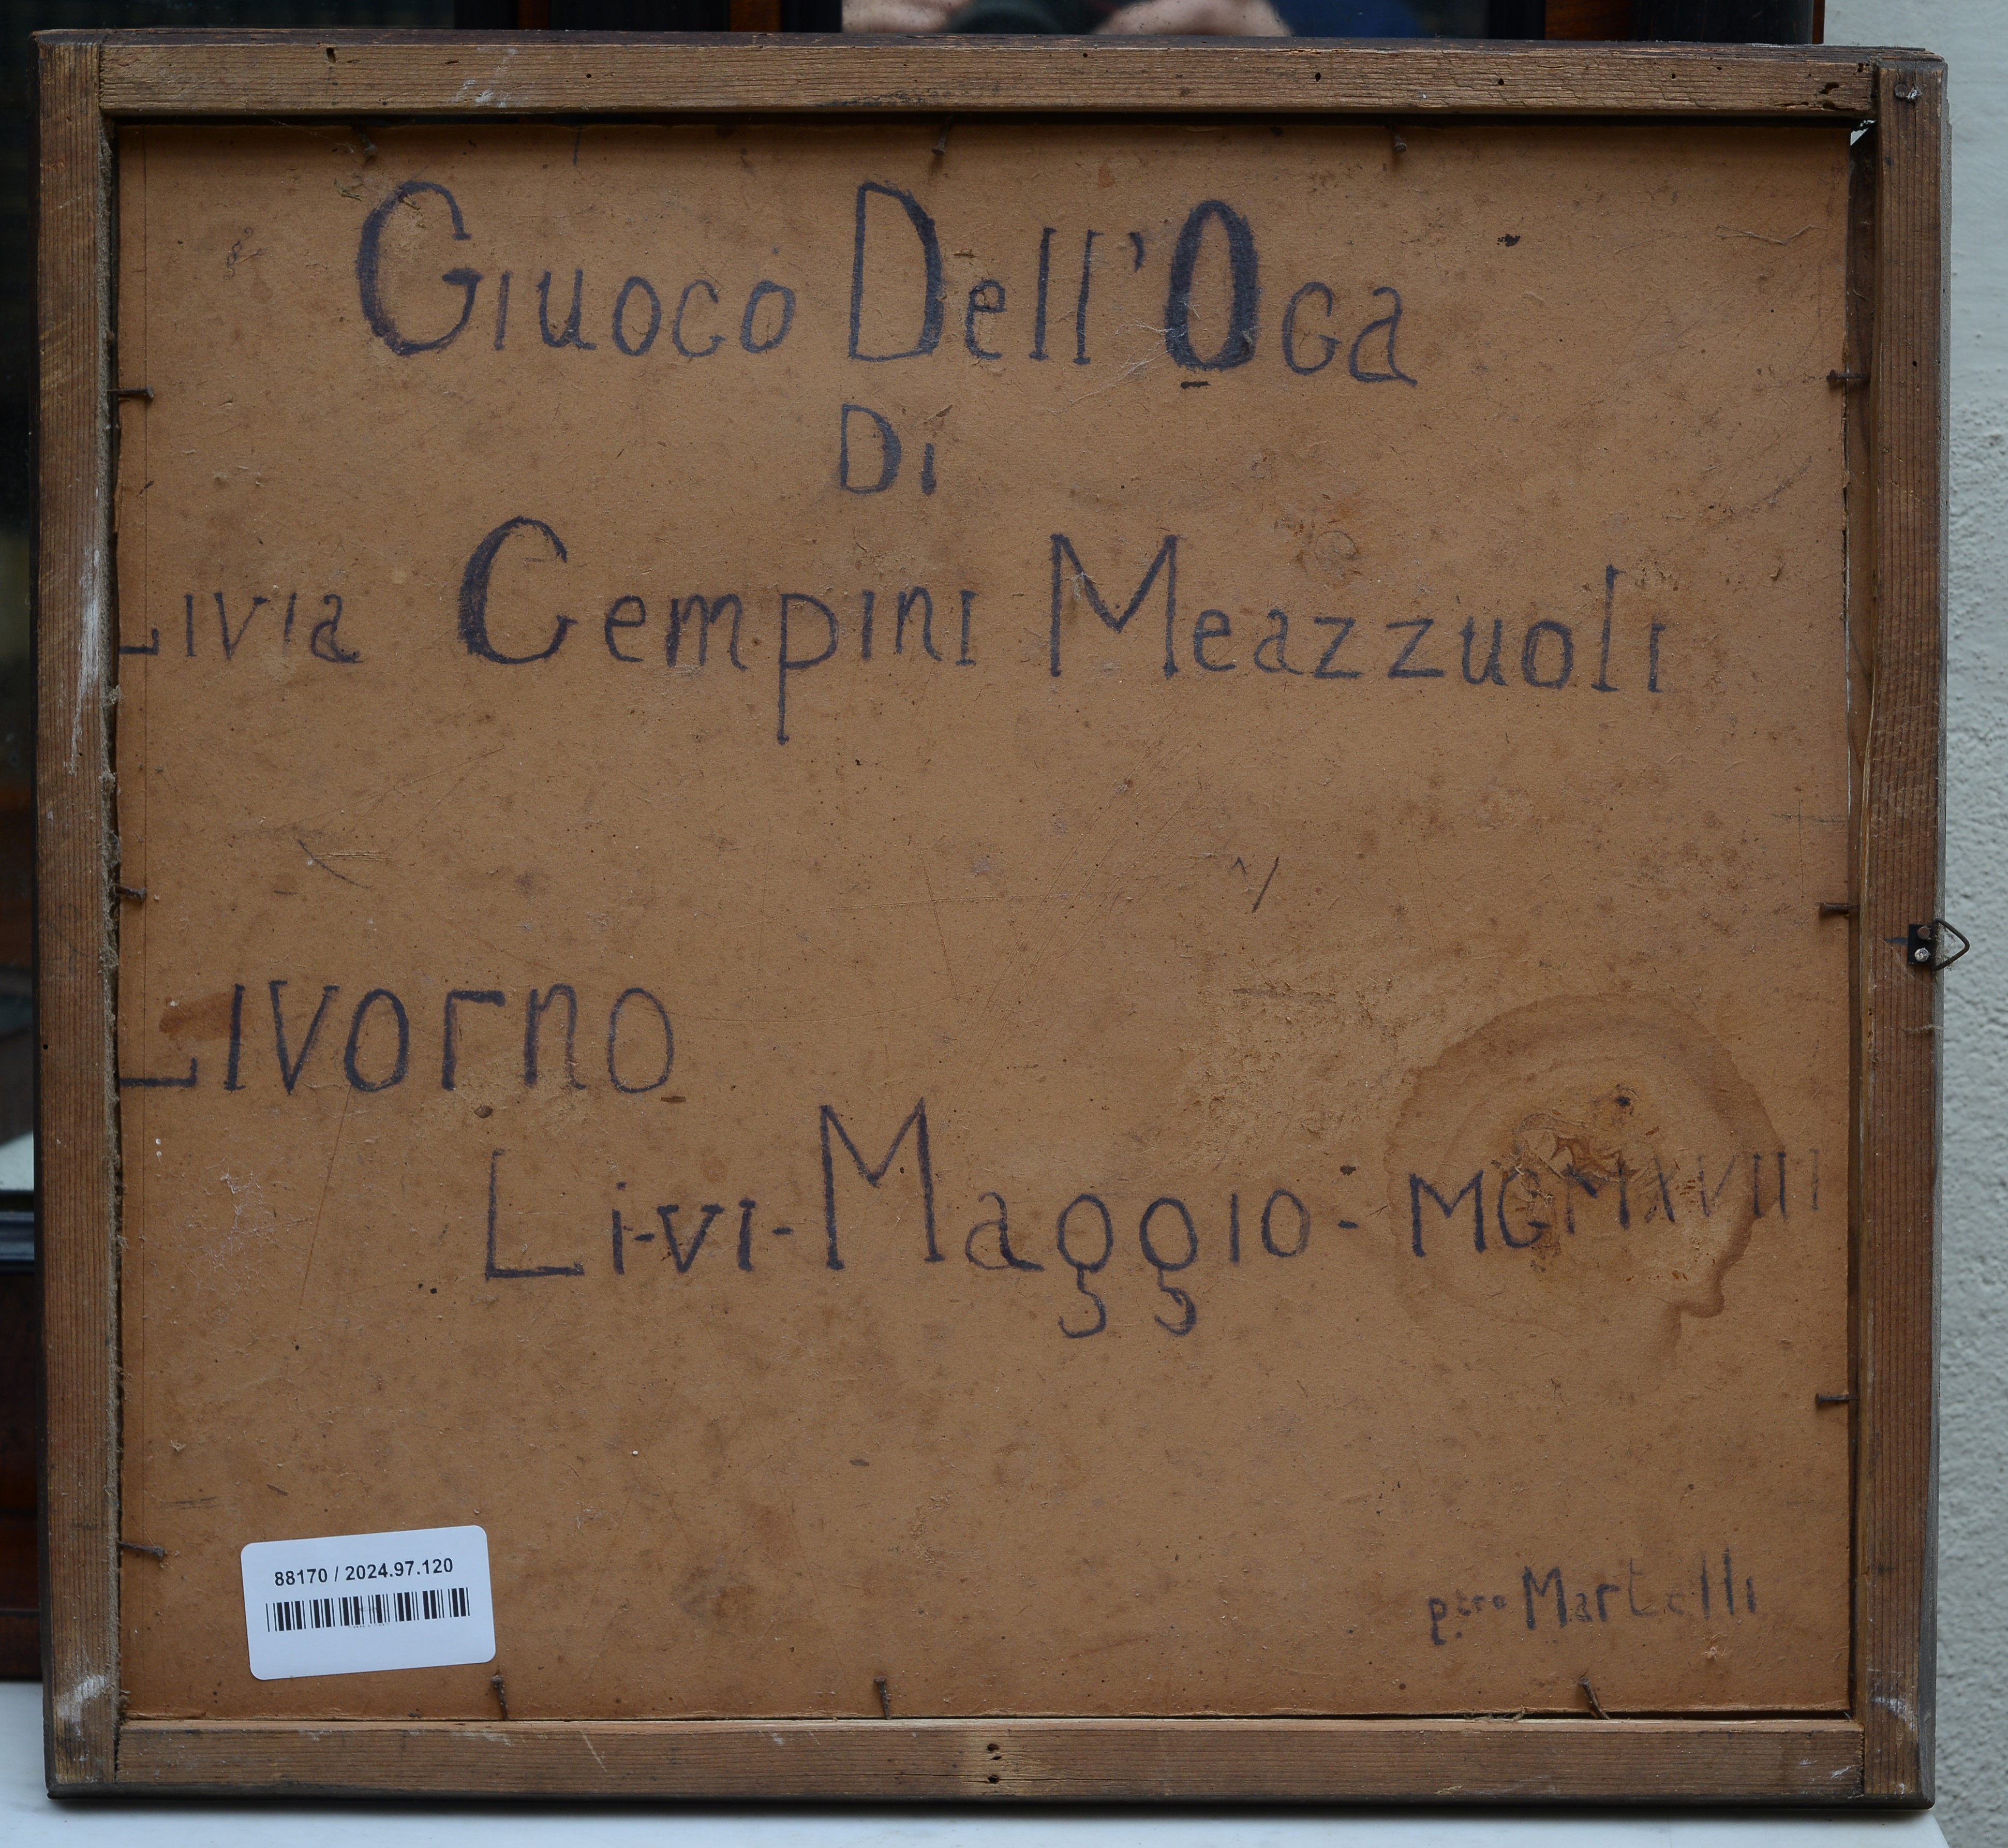 Giuoco Dell'Oca
Di
Livia Cempini Meazzuoli
Livorno
Li-vi-Maggio-MCMXVIII
Martelli
88170 / 2024.97.120